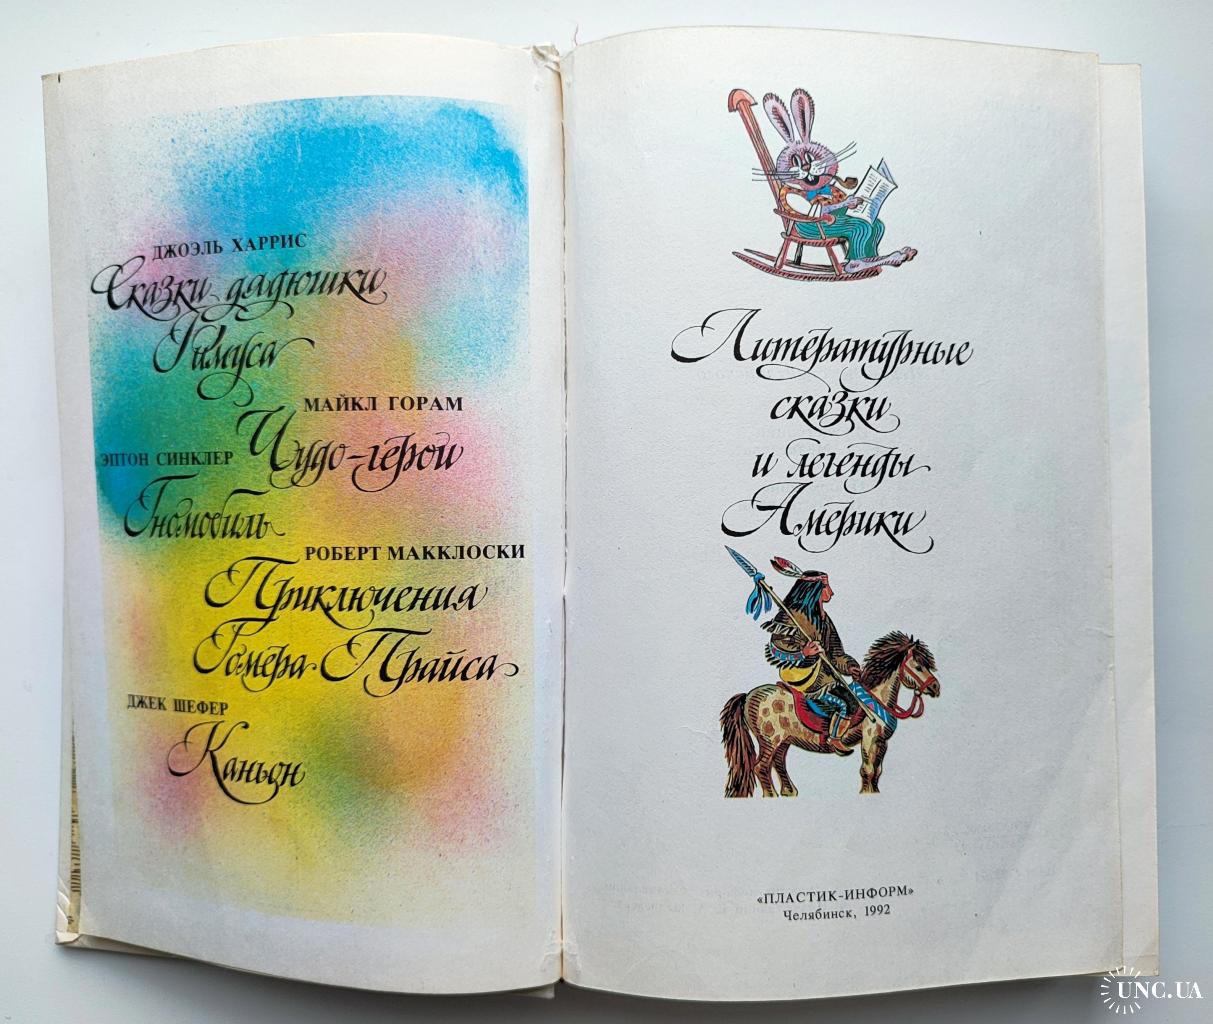 ДЖОЭЛЬ ХАРРИС
Сказки дядюшки
Римуса
МАЙКЛ ГОРАМ
Чудо-герои
ЭПТОН СИНКЛЕР
Гномобиль
РОБЕРТ МАККЛОСКИ
Приключения
Гомера Прайса
ДЖЕК ШЕФЕР
Каньон
Литературные
сказки
и легенды
Америки
«ПЛАСТИК-ИНФОРМ»
Челябинск, 1992
UNC.UA